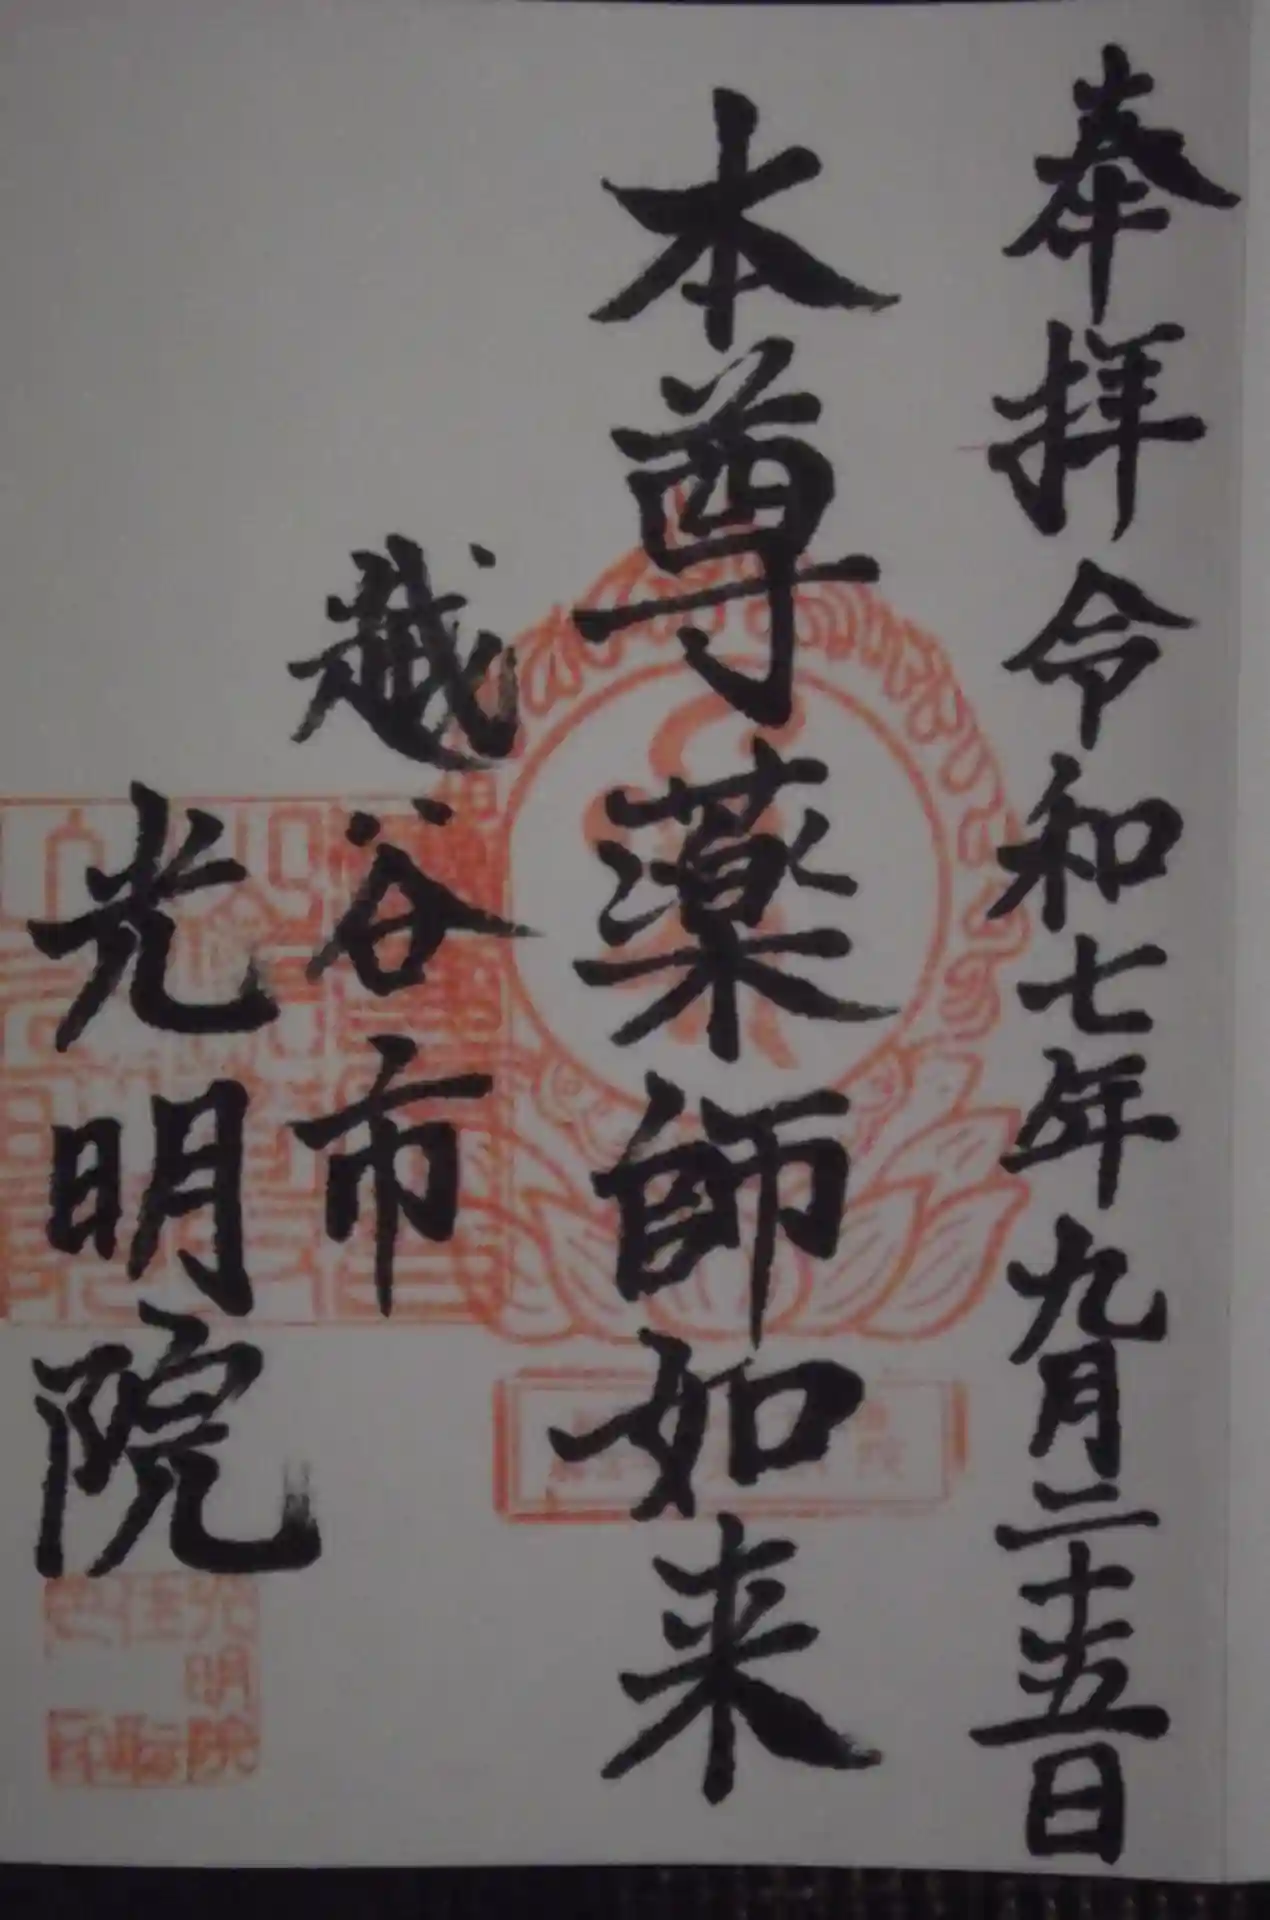 奉拝 令和七年九月二十五日
本尊薬師如来
越谷市
光明院
光明院